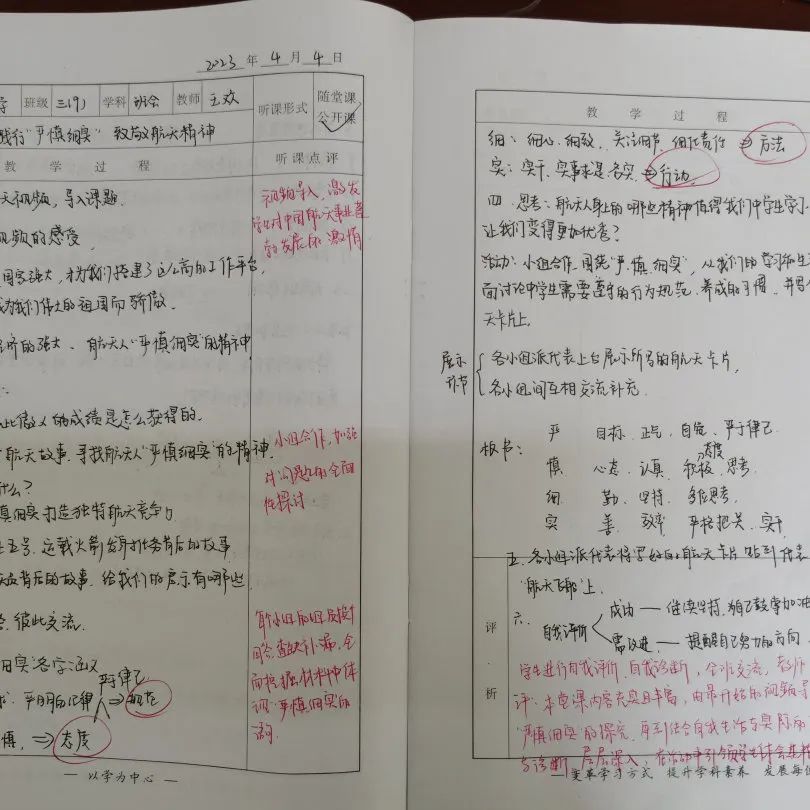 2023年4月4日
班级 三(9) 学科 班会 教师 王欢 听课形式 随堂课 公开课
践行"严慎细实" 致敬航天精神
教学过程 听课点评
视频,导入课题.
视频的感受.
国家强大,才为我们搭建了这么高的工作平台,
成为我们伟大的祖国而骄傲.
经济的强大、航天人"严慎细实"的精神
的成绩是怎么获得的.
航天故事.寻找航天人"严慎细实"的精神.
什么?
慎细实打造独特航天竞争力
五号、运载火箭发射任务背后的故事
背后的故事.给我们的启示有哪些
彼此交流.
细实"各字涵义
严于律己
严明自己律 ⇒ 规范
慎, ⇒ 态度
— 以学为中心 —
视频导入,激发
学生对中国航天事业蓬
勃发展的激情
小组合作,加强
对问题的全面
性探讨.
每小组的组员按时
回答,查缺补漏,全
面挖掘材料中体
现"严慎细实"的
词.
教学过程
细:细心.细致.关注细节.细化责任 ⇒ 方法
实:实干.实事求是.务实. ⇒ 行动.
四.思考:航天人身上的哪些精神值得我们中学生学习
让我们变得更加优秀?
活动:小组合作.围绕"严.慎.细实",从我们的学习和生
面讨论中学生需要遵守的行为规范.养成的习惯,并写
天卡片上.
展示环节
各小组派代表上台展示所写的航天卡片,
各小组间互相交流补充.
板书:
严 目标.正气.自觉.严于律己
态度
慎 心态.认真.积极.思考.
细 勤.坚持.多维思考.
实 善.效率.严格把关.实干.
五.各小组派代表将写好的航天卡片贴到代表
"航天飞船"上.
六.自我评价
成功 — 继续坚持.为自己鼓掌加油
需改进 — 提醒自己努力的方向.
评析
学生进行自我评价.自我诊断,全班交流,教师
评.本堂课内容充实且丰富,由最开始的视频导
"严慎细实"的探究.再到结合自我生活与实际的
与诊断.层层深入,在活动中引领学生体会其精
— 变革学习方式 提升学科素养 发展每位